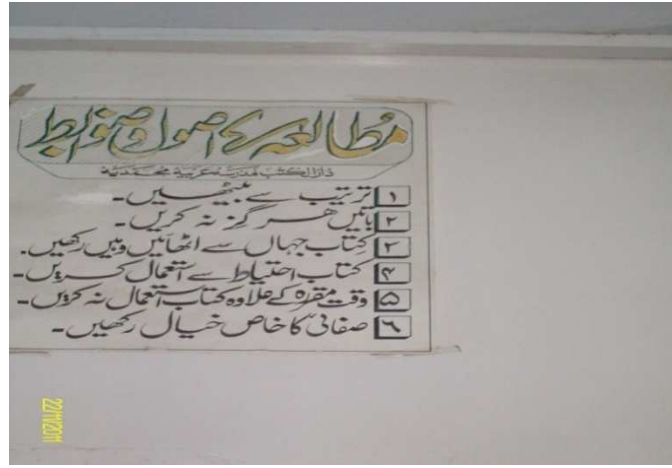 مُطالعہ کے اصول و ضوابط
دارالکتب مدرسہ عربیہ محمدیہ
۱ ترتیب سے بیٹھیں۔
۲ باتیں ھرگز نہ کریں۔
۳ کتاب جہاں سے اٹھائیں وہیں رکھیں۔
۴ کتاب احتیاط سے استعمال کریں۔
۵ وقت مقررہ کے علاوہ کتاب استعمال نہ کریں۔
۶ صفائی کا خاص خیال رکھیں۔
22/11/2011